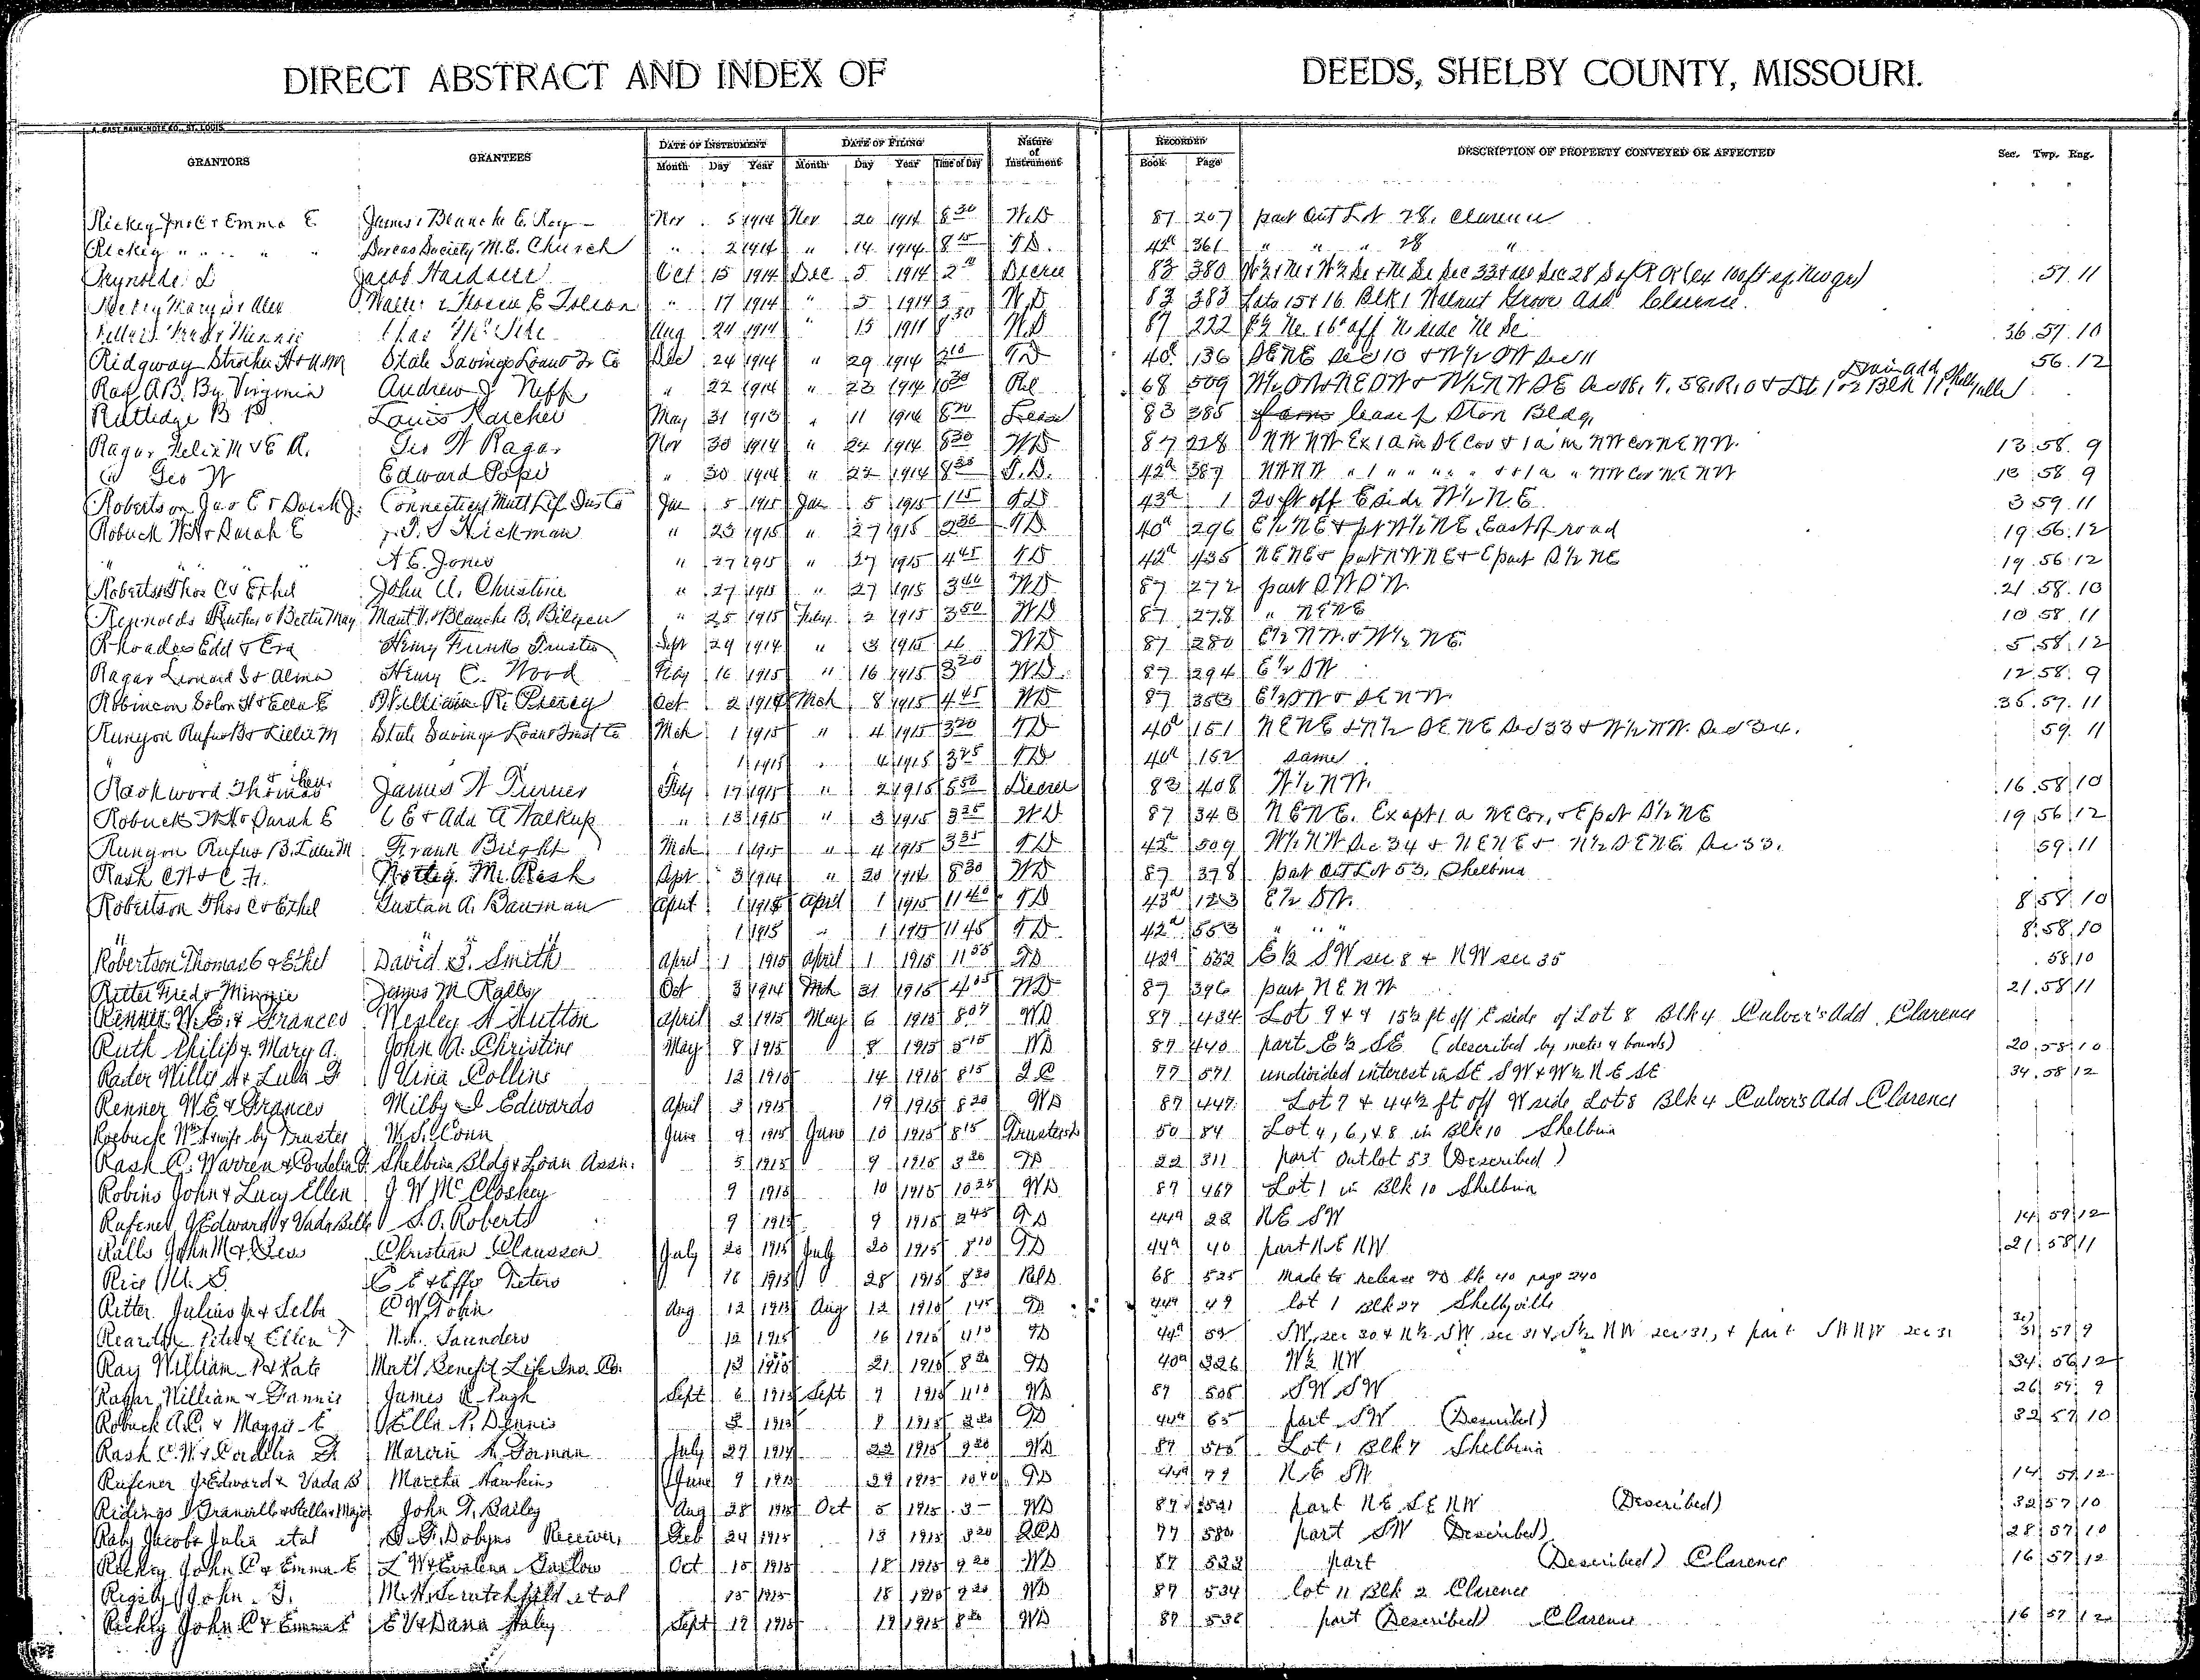 DIRECT ABSTRACT AND INDEX OF DEEDS, SHELBY COUNTY, MISSOURI.
A. GAST BANK-NOTE CO., ST. LOUIS.
GRANTORS GRANTEES DATE OF INSTRUMENT DATE OF FILING Nature of Instrument RECORDED DESCRIPTION OF PROPERTY CONVEYED OR AFFECTED Sec. Twp. Rng.
Month Day Year Month Day Year Time of Day Book Page
Rickey Jno C & Emma E James & Blanche E. Roy Nov 5 1914 Nov 20 1914 8 30 W.D 87 207 part Out Lot 28, Clarence
Rickey " " " " Dorcas Society M.E. Church " 2 1914 " 14 1914 8 15 T.D. 42a 361 " " " 28 "
Reynolds L Jacob Oct 15 1914 Dec 5 1914 2 Decree 83 380 57 11
" 17 1914 " 5 1914 3 W.D 83 383 Lots 15 & 16 Blk 1 Walnut Grove add Clarence
Aug 24 1914 " 15 1911 W.D 87 222 36 57 10
Ridgway Strother H & U.M State Savings Loan & Tr Co Dec 24 1914 " 29 1914 TD 40a 136 SENE Sec 10 & W½ SW Sec 11 56 12
Ray A B. By Virginia Andrew J Neff " 22 1914 " 23 1914 10 30 Rel 68 509 58
Rutledge B P Louis Karcher May 31 1913 " 11 1914 8 20 Lease 83 385 lease of Store Bldg,
Ragar Felix M & E A. Geo W Ragar Nov 30 1914 " 22 1914 8 30 WD 87 228 NW NW Ex 1 a in SE Cor & 1 a in NW cor NE NW. 13 58 9
Geo W Edward Pope " 30 1914 " 22 1914 8 35 T.D. 42a 387 NW NW " 1 " " " " & 1 a " NW Cor NE NW 13 58 9
Robertson Jas E & Sarah J. Connecticut Mutl Lif Ins Co Jan 5 1915 Jan 5 1915 1 15 TD 43a 1 20 ft off E side W½ N.E 3 59 11
Robuck W H & Sarah E Hickman " 23 1915 " 27 1915 2 30 TD 40a 296 E½ NE & pt W½ NE, East of road 19 56 12
" " " A E. Jones " 27 1915 " 27 1915 4 45 TD 42a 435 NENE & part NW NE & E part S½ NE 19 56 12
Roberts Thos C & Ethel John A. Christine " 27 1915 " 27 1915 3 00 WD 87 272 part SWSW. 21 58 10
Reynolds & Bettie May & Blanche B. " 25 1915 Feby 2 1915 3 50 WD 87 278 " NENE 10 58 11
Rhoades Edd & Eva Henry Funk Trustee Sept 29 1914 " 3 1915 4 WD 87 280 E½ NW. & W½ NE. 5 58 12
Ragar Leonard S & Alma Henry C. Wood Feby 16 1915 " 16 1915 3 20 WD. 87 294 E½ SW 12 58 9
Robinson Solon H & Ella E William R. Piercy Oct 2 1914 Mch 8 1915 4 45 WD 87 353 E½ SW & SE NW. 35 57 11
Runyon Rufus B & Lillie M State Savings Loan & Trust Co Mch 1 1915 " 4 1915 3 20 TD 40a 151 NENE & N½ SENE Sec 33 & W½ NW. Sec 34. 59 11
1 1915 " 4 1915 3 25 TD 40a 152 same
Rookwood Thomas James W Turner Feby 17 1915 " 2 1915 5 50 Decree 83 408 W½ NW. 16 58 10
Robuck W H & Sarah E C E & Ada A Walkup " 13 1915 " 3 1915 3 35 WD 87 343 NENE. Except 1 a NE Cor, & E part S½ NE 19 56 12
Runyon Rufus B. Lillie M Frank Bright Mch 1 1915 " 4 1915 3 35 TD 42a 509 W½ NW Sec 34 & NENE & N½ SENE Sec 33. 59 11
Rash C W & C. F. Nottey M. Rash Apr 3 1914 " 20 1914 8 30 WD 87 378 part Out Lot 53, Shelbina
Robertson Thos C & Ethel Gustav A. Bauman April 1 1915 April 1 1915 11 40 TD 43a 123 E½ SW. 8 58 10
" " 1 1915 " 1 1915 11 45 TD 42a 553 " " " 8 58 10
Robertson Thomas C & Ethel David S. Smith April 1 1915 April 1 1915 11 55 TD 42a 552 E½ SW sec 8 & NW sec 35 58 10
Ritter Fred & Minnie James M Ralls Oct 3 1914 Mch 31 1915 4 05 WD 87 396 part NENW 21 58 11
Renner W. E. & Frances Wesley A Sutton April 3 1915 May 6 1915 8 07 WD 87 434 Lot 9 & 15½ ft off E side of Lot 8 Blk 4 Culver's Add Clarence
Ruth Philip & Mary A. John A. Christine May 8 1915 8 1915 5 15 WD 87 440 part E½ SE (described by metes & bounds) 20 58 10
Rader Willis A & Lula F Urina Collins 12 1915 14 1915 8 15 Q C 77 571 undivided interest in SE SW & W½ NE SE 34 58 12
Renner W E & Frances Milby S Edwards April 3 1915 19 1915 8 20 WD 87 447 Lot 7 & 44½ ft off W side Lot 8 Blk 4 Culver's Add Clarence
Roebuck Wm & wife by Trustee W. S. Conn June 9 1915 June 10 1915 8 15 Trustees D 50 84 Lot 4, 6, & 8 in Blk 10 Shelbina
Rash C. Warren & Cordelia F. Shelbina Bldg & Loan Assn. 5 1915 9 1915 3 20 TD 22 311 part Outlot 53 (Described)
Robins John & Lucy Ellen J W McCloskey 9 1915 10 1915 10 25 WD 87 467 Lot 1 in Blk 10 Shelbina
Rufener J Edward & Vada Belle S. O. Roberts 9 1915 9 1915 2 45 TD 44a 22 NE SW 14 59 12
Ralls John M & Bess Christian Claussen July 20 1915 July 20 1915 8 10 TD 44a 40 part NE NW 21 58 11
Rice U. S. C E & Effie Peters 16 1915 28 1915 8 20 Rel D 68 525 Made to release TD bk 40 page 240
Ritter Julius Jr & Selba C W John Aug 12 1915 Aug 12 1915 1 45 TD 44a 49 lot 1 Blk 27 Shelbyville
Reardon Peter & Ellen T N. A. Saunders 12 1915 16 1915 4 10 TD 44a 52 SW sec 30 & N½ SW sec 31 & S½ NW sec 31, & part SW NW sec 31 30 31 57 9
Ray William P & Kate Mut'l Benefit Life Ins. Co. 13 1915 21 1915 8 20 TD 40a 326 W½ NW 34 56 12
Ragar William & Fannie James R Pugh Sept 6 1915 Sept 7 1915 11 10 WD 87 505 SW SW 26 59 9
Robuck A. C. & Maggie E Ella P. Dennis 3 1915 8 1915 8 20 TD 44a 65 part SW (Described) 32 57 10
Rash C. W. & Cordelia F Marcena A. Forman July 27 1914 22 1915 9 20 WD 87 515 Lot 1 Blk 7 Shelbina
Rufener J Edward & Vada B Martha Hawkins June 9 1915 29 1915 10 40 TD 44a 77 NE SW 14 59 12
Ridings Granville & Stella & Major John T. Bailey Aug 28 1915 Oct 5 1915 3 WD 87 521 part NE SE NW (Described) 32 57 10
Raby Jacob & Julia et al F. Dobyns Receiver Feb 24 1915 13 1915 3 20 QCD 77 580 part SW (Described) 28 57 10
Rickey John C & Emma E L W & Evalena Oct 15 1915 18 1915 9 20 WD 87 533 part (Described) Clarence 16 57 12
Rigsby John. T. M. W. Scrutchfield et al 15 1915 18 1915 9 20 WD 87 534 lot 11 Blk 2 Clarence
Rickey John C & Emma E E V & Dana Haley Sept 17 1915 19 1915 8 20 WD 87 536 part (Described) Clarence 16 57 12